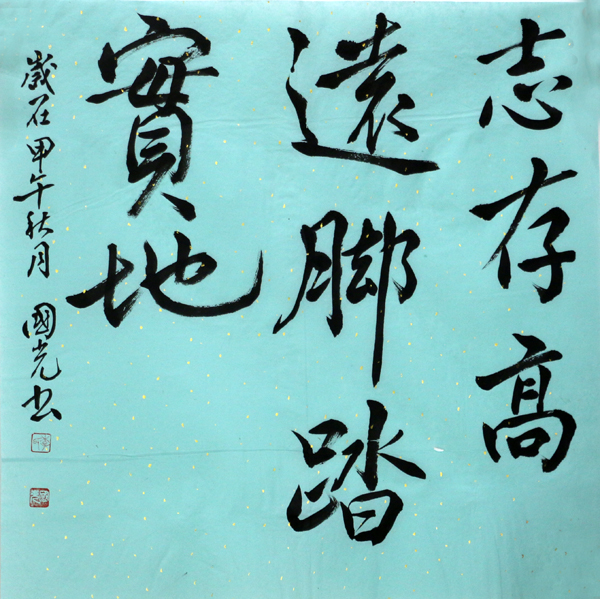 志存高
遠脚踏
實地
歲在甲午秋月 國光书